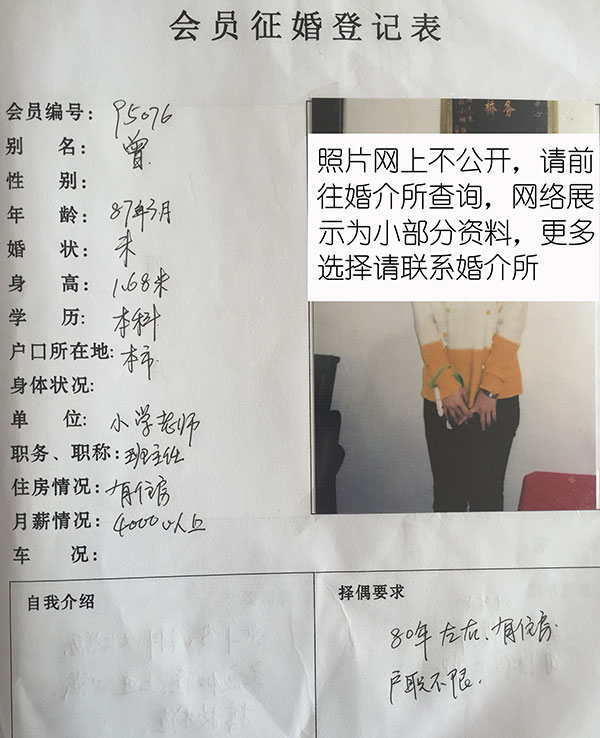 会员征婚登记表
会员编号: 95076
别 名: 曾
性 别:
年 龄: 87年3月
婚 状: 未
身 高: 1.68米
学 历: 本科
户口所在地: 本市
身体状况:
单 位: 小学老师
职务、职称: 班主任
住房情况: 有住房
月薪情况: 4000以上
车 况:
照片网上不公开，请前
往婚介所查询，网络展
示为小部分资料，更多
选择请联系婚介所
自我介绍
择偶要求
80年左右、有住房
户职不限.